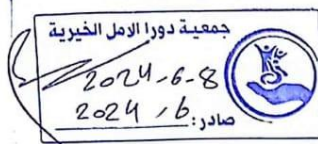 جمعية دورا الامل الخيرية
2024-6-8
صادر: 6/ 2024